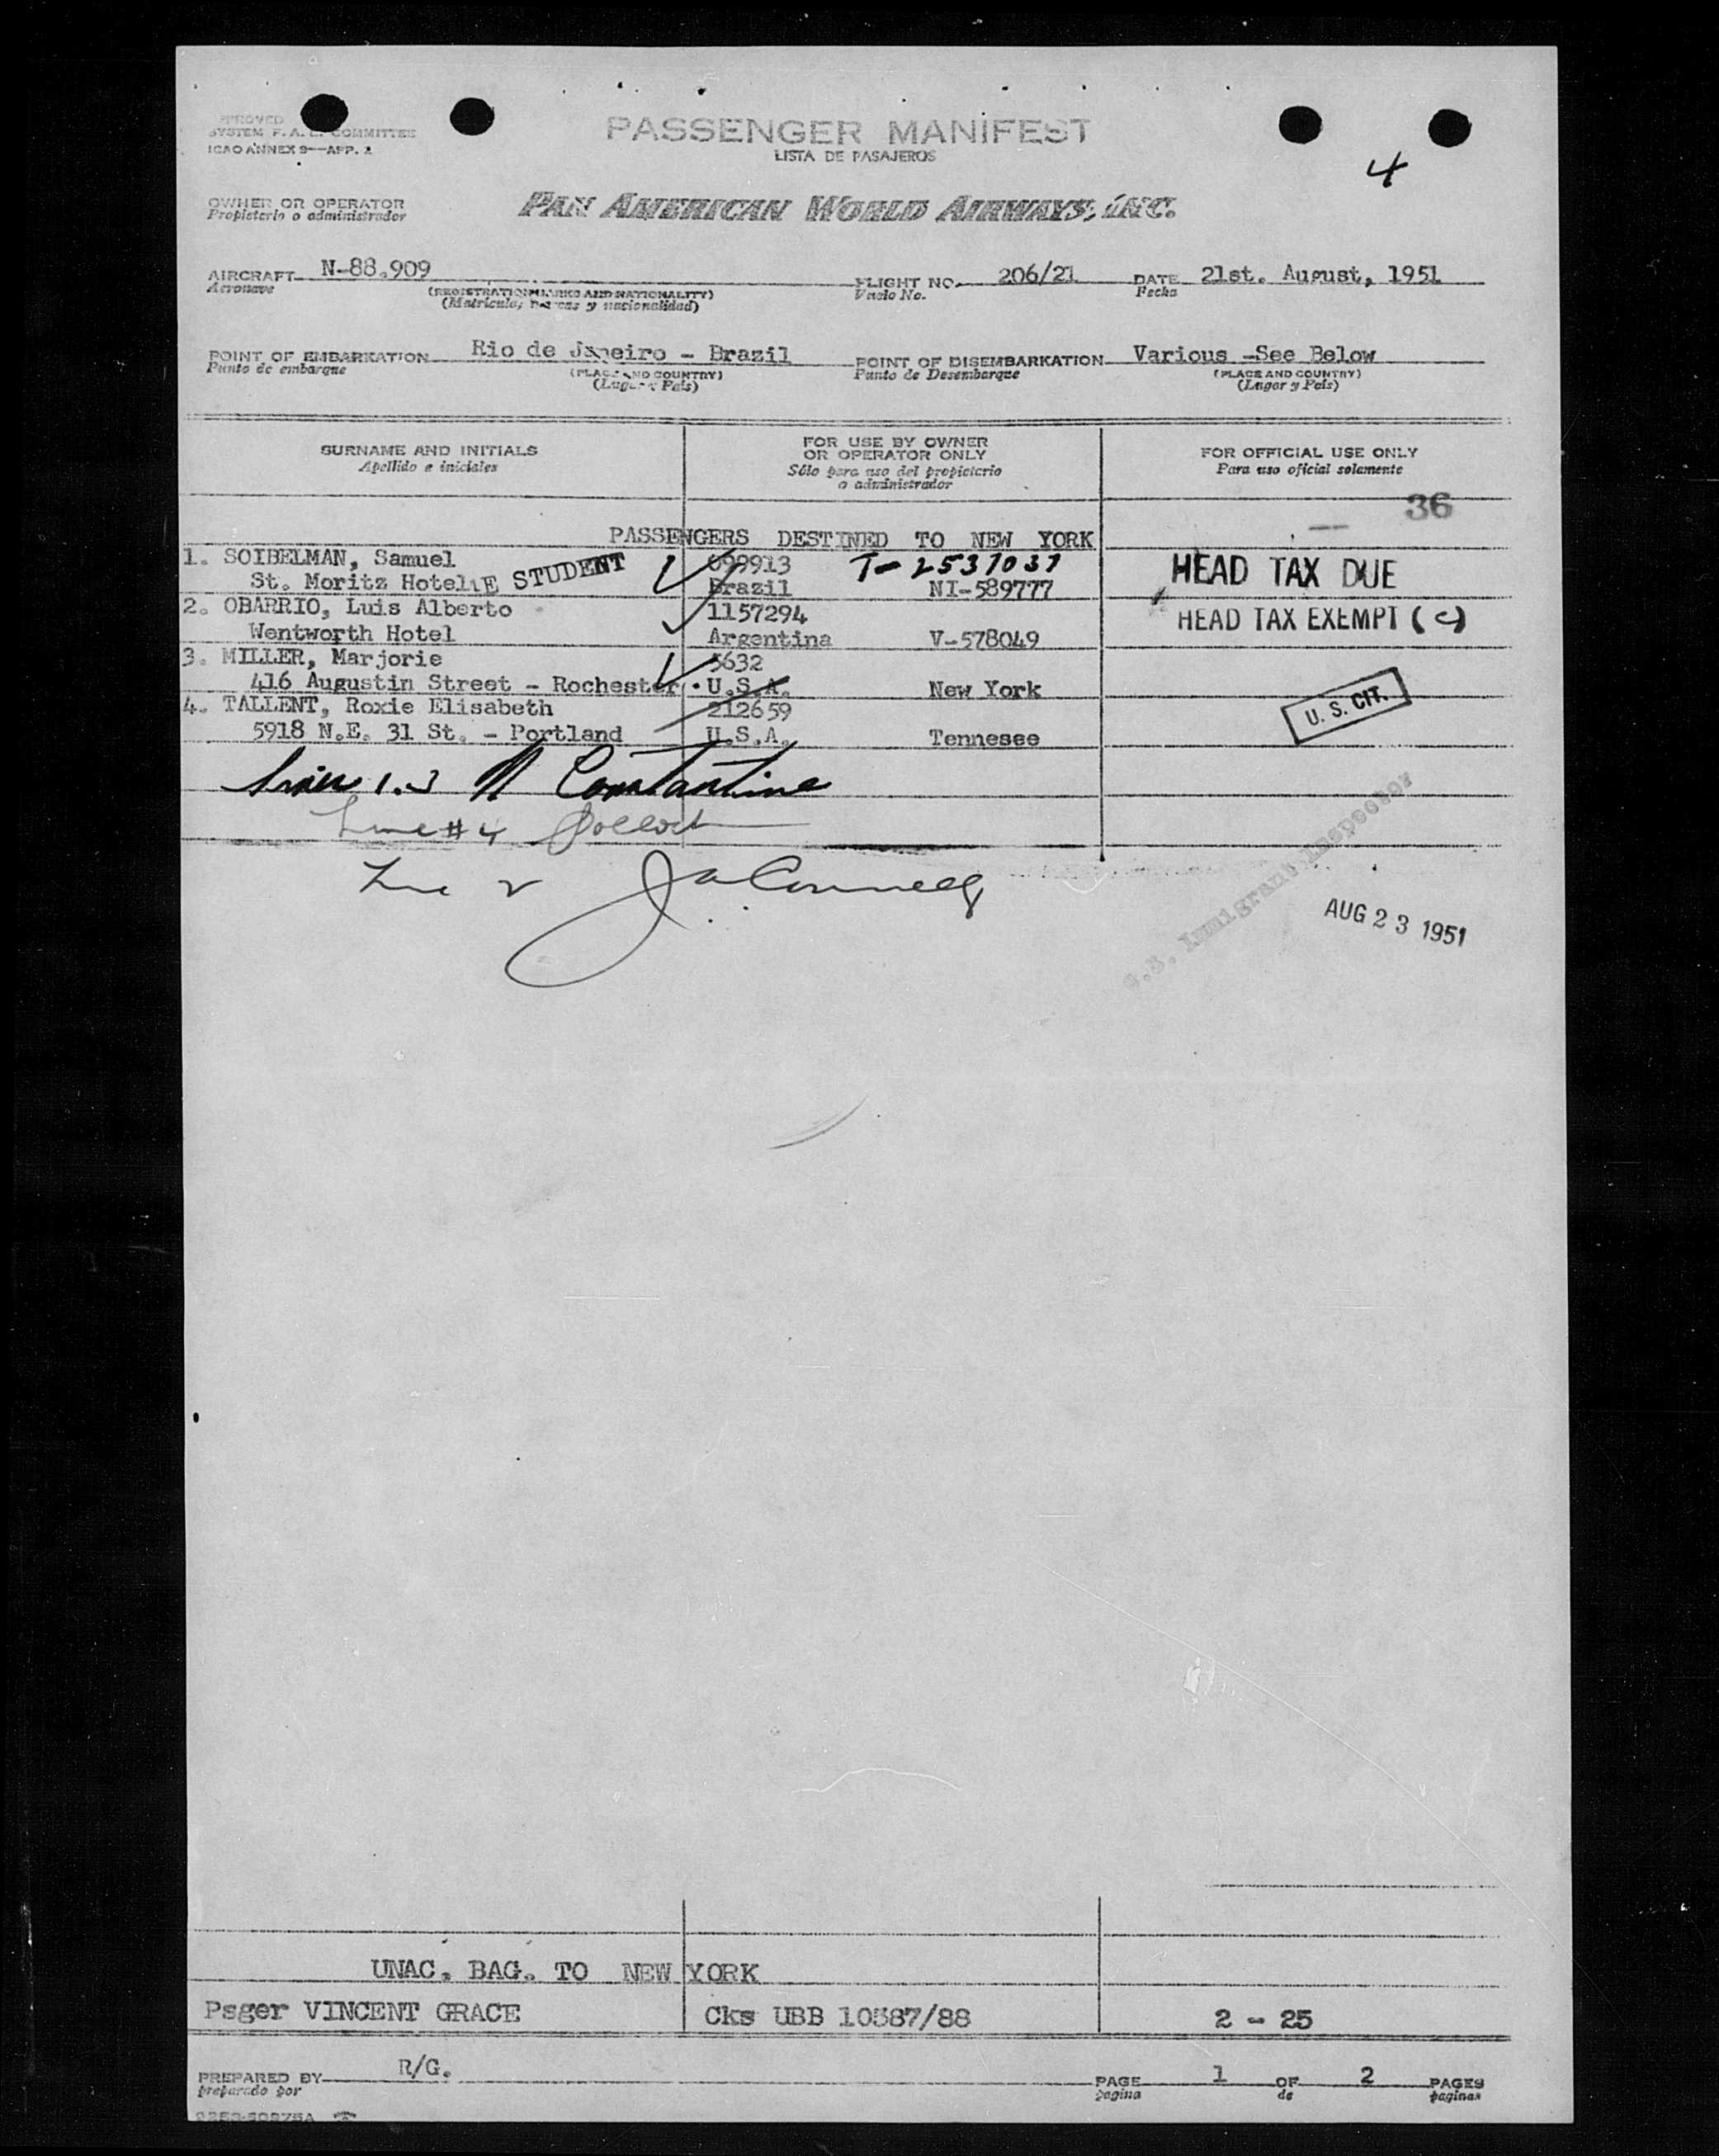 PROVED
SYSTEM F. A. L. COMMITTEE
ICAO ANNEX 9—APP. 2
PASSENGER MANIFEST
LISTA DE PASAJEROS
4
OWNER OR OPERATOR
Propietario o administrador
PAN AMERICAN WORLD AIRWAYS, INC.
AIRCRAFT N-88.909 FLIGHT NO. 206/21 DATE 21st. August, 1951
Aeronave (REGISTRATION MARKS AND NATIONALITY) Vuelo No. Fecha
(Matricula, marcas y nacionalidad)
POINT OF EMBARKATION Rio de Janeiro - Brazil POINT OF DISEMBARKATION Various -See Below
Punto de embarque (PLACE AND COUNTRY) Punto de Desembarque (PLACE AND COUNTRY)
(Lugar y Pais) (Lugar y Pais)
SURNAME AND INITIALS FOR USE BY OWNER OR OPERATOR ONLY FOR OFFICIAL USE ONLY
Apellido e iniciales Sólo para uso del propietario o administrador Para uso oficial solamente
36
PASSENGERS DESTINED TO NEW YORK
1. SOIBELMAN, Samuel 099913 T-2537037 HEAD TAX DUE
St. Moritz Hotel 4E STUDENT Brazil NI-589777
2. OBARRIO, Luis Alberto 1157294 HEAD TAX EXEMPT (c)
Wentworth Hotel Argentina V-578049
3. MILLER, Marjorie 5632
416 Augustin Street - Rochester. U.S.A. New York U. S. CIT.
4. TALLENT, Roxie Elisabeth 212659
5918 N.E. 31 St. - Portland U.S.A. Tennesee
1.3 Constantine
Line #4 Pollock
Line 2
U.S. Immigrant Inspector
AUG 23 1951
UNAC. BAG. TO NEW YORK
Psger VINCENT GRACE Cks UBB 10587/88 2 - 25
PREPARED BY R/G. PAGE 1 OF 2 PAGES
preparado por pagina de paginas